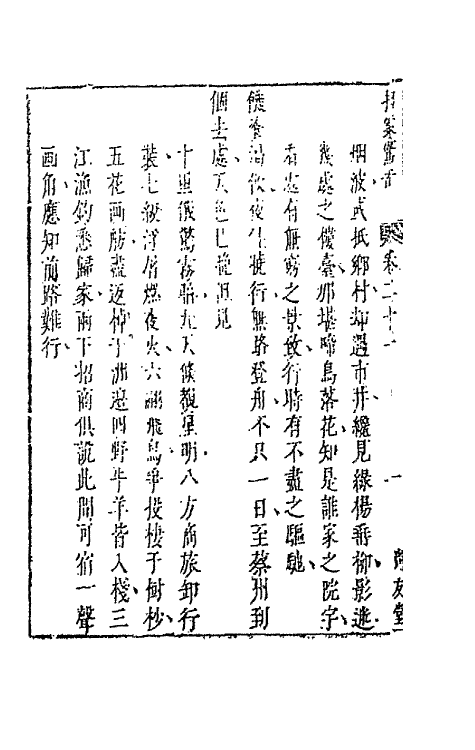 拍案驚奇 卷二十一 一 尚友堂
烟波或抵鄉村却遇市井纔見綠楊垂柳影迷
幾處之樓臺那堪啼鳥落花知是誰家之院宇
看處有無窮之景致行時有不盡之驅馳
饑餐渴飲夜住曉行無路登舟不只一日至蔡州到
個去處天色已晚但見
十里俄驚霧暗九天倏覩星明八方商旅卸行
裝七級浮屠燃夜火六翮飛鳥爭投棲于樹杪
五花畫舫盡返棹于洲邊四野牛羊皆入棧三
江漁釣悉歸家兩下招商俱說此間可宿一聲
画角應知前路難行